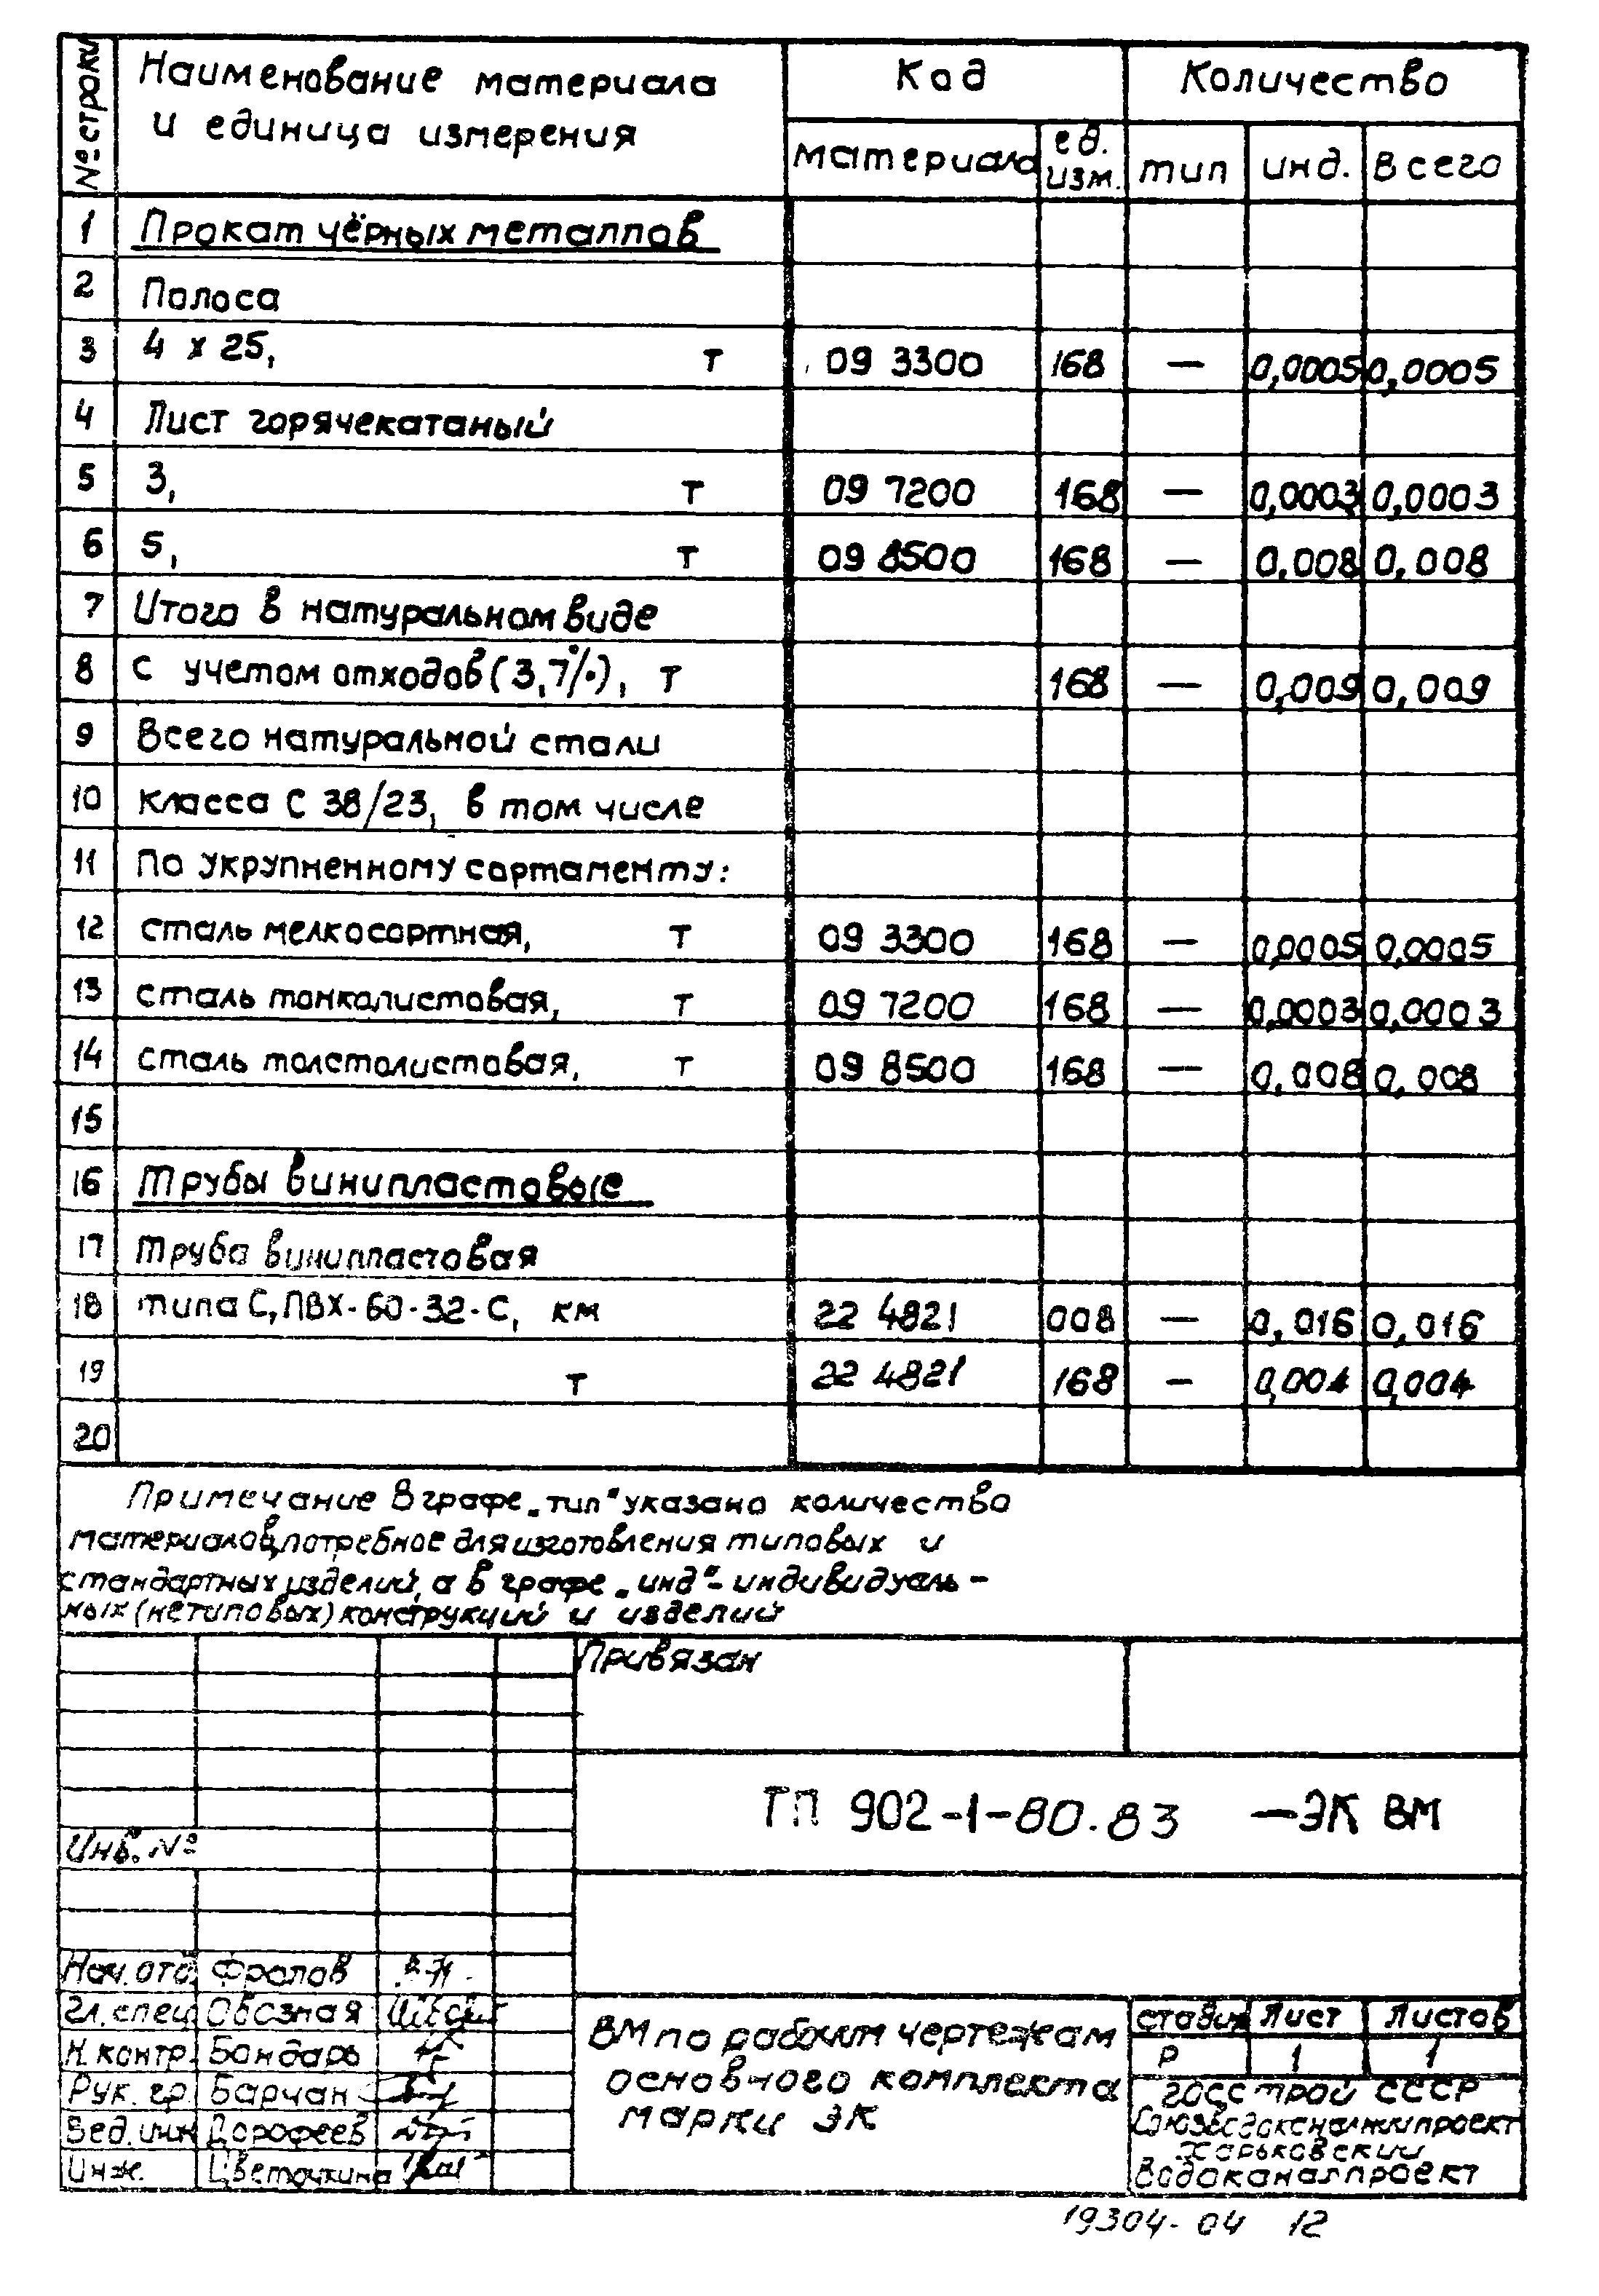 № строки Наименование материала и единица измерения Код Количество
материала ед. изм. тип инд. всего
1 Прокат чёрных металлов
2 Полоса
3 4 х 25, т 09 3300 168 — 0,0005 0,0005
4 Лист горячекатаный
5 3, т 09 7200 168 — 0,0003 0,0003
6 5, т 09 8500 168 — 0,008 0,008
7 Итого в натуральном виде
8 с учетом отходов (3,7%), т 168 — 0,009 0,009
9 Всего натуральной стали
10 класса С 38/23, в том числе
11 по укрупненному сортаменту:
12 сталь мелкосортная, т 09 3300 168 — 0,0005 0,0005
13 сталь тонколистовая, т 09 7200 168 — 0,0003 0,0003
14 сталь толстолистовая, т 09 8500 168 — 0,008 0,008
15
16 Трубы винипластовые
17 Труба винипластовая
18 типа С, ПВХ-60-32-С, км 22 4821 008 — 0,016 0,016
19 т 22 4821 168 — 0,004 0,004
20
Примечание В графе „тип" указано количество
материалов, потребное для изготовления типовых и
стандартных изделий, а в графе „инд"- индивидуаль-
ных (нетиповых) конструкций и изделий
Привязан
ТП 902-1-80.83 —ЭК ВМ
Инв. №
Нач. отд. Фролов
Гл. спец. Обозная
Н. контр. Бондарь
Рук. гр. Барчан
Вед. инж Дорофеев
Инж. Цветочкина
ВМ по рабочим чертежам
основного комплекта
марки ЭК
стадия Лист Листов
Р 1 1
Госстрой СССР
Союзводоканалниипроект
Харьковский
Водоканалпроект
19304-04 12